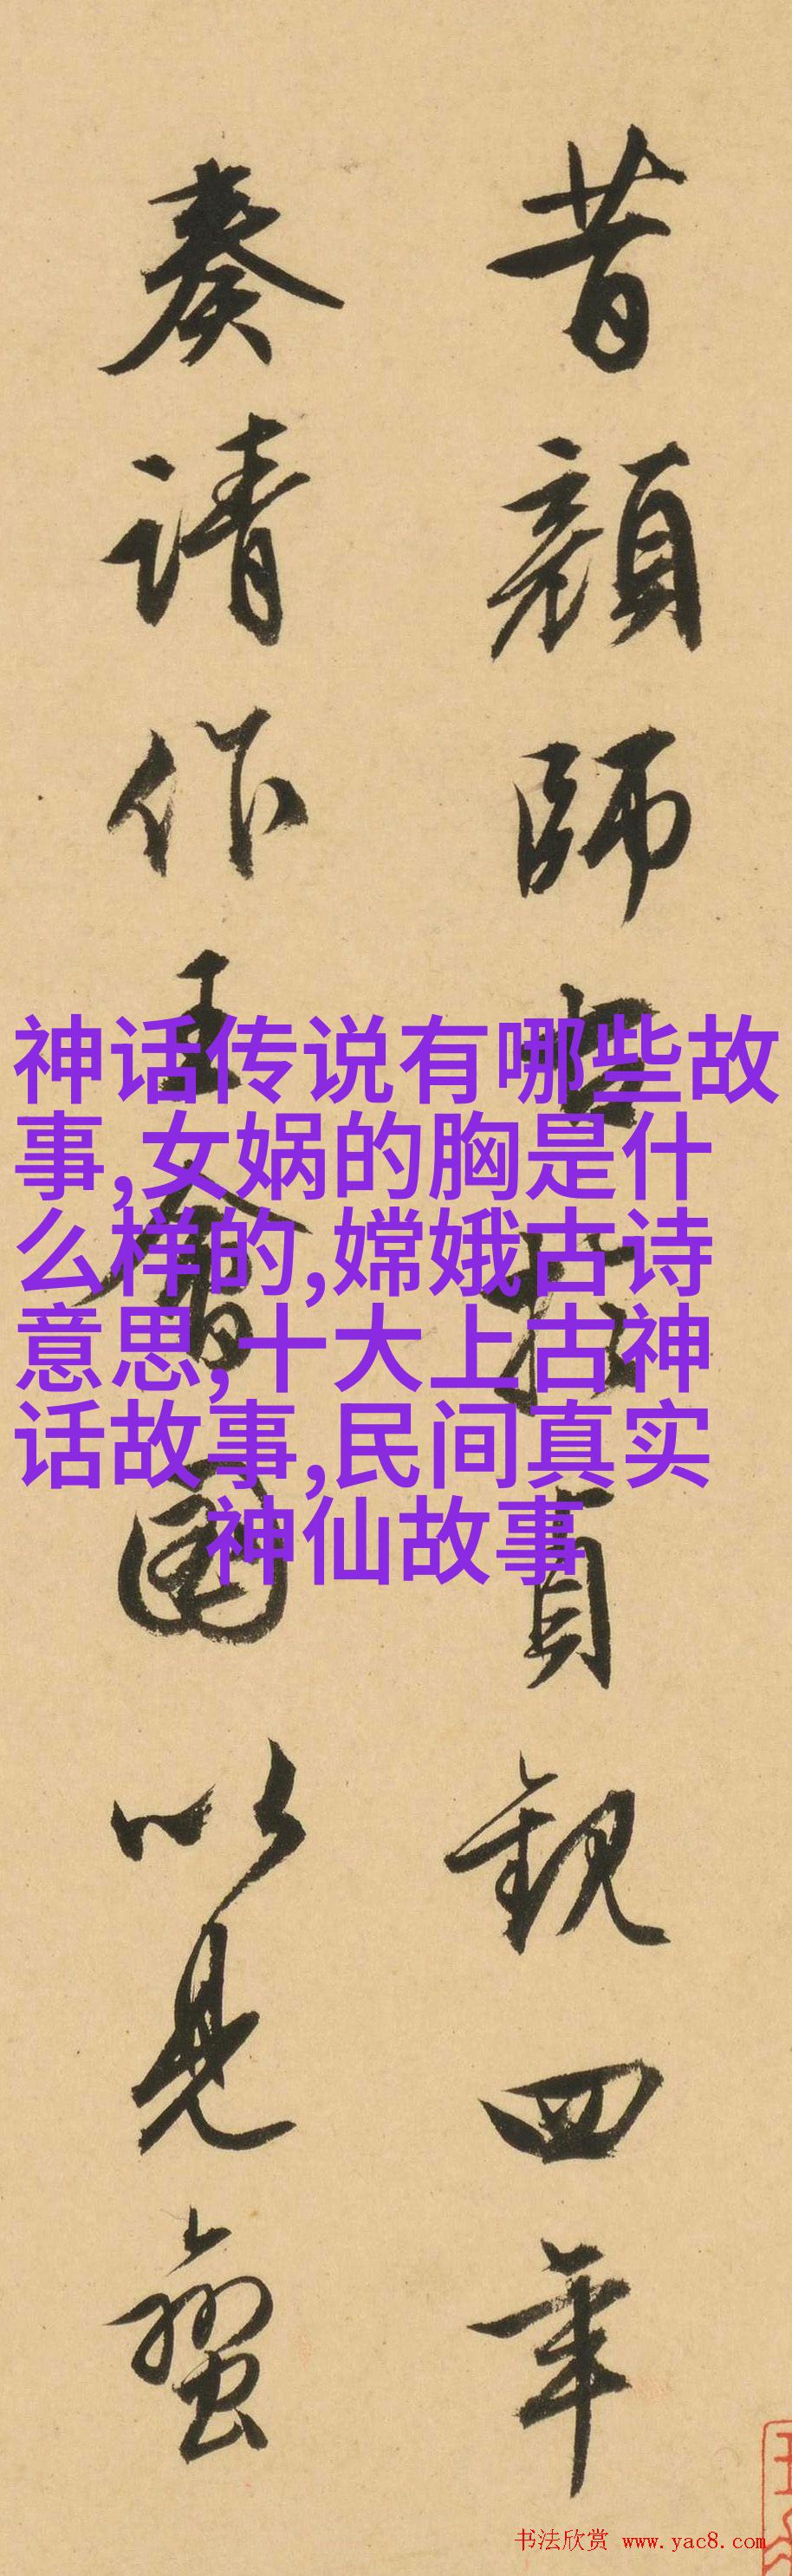 昔顔師古於貞観四年
奏請作王會圖以見蠻
神话传说有哪些故
事,女娲的胸是什
么样的,嫦娥古诗
意思,十大上古神
话故事,民间真实
神仙故事
书法欣赏 www.yac8.com